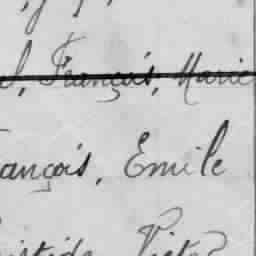 François, Marie
ançois, Emile
istide Victo